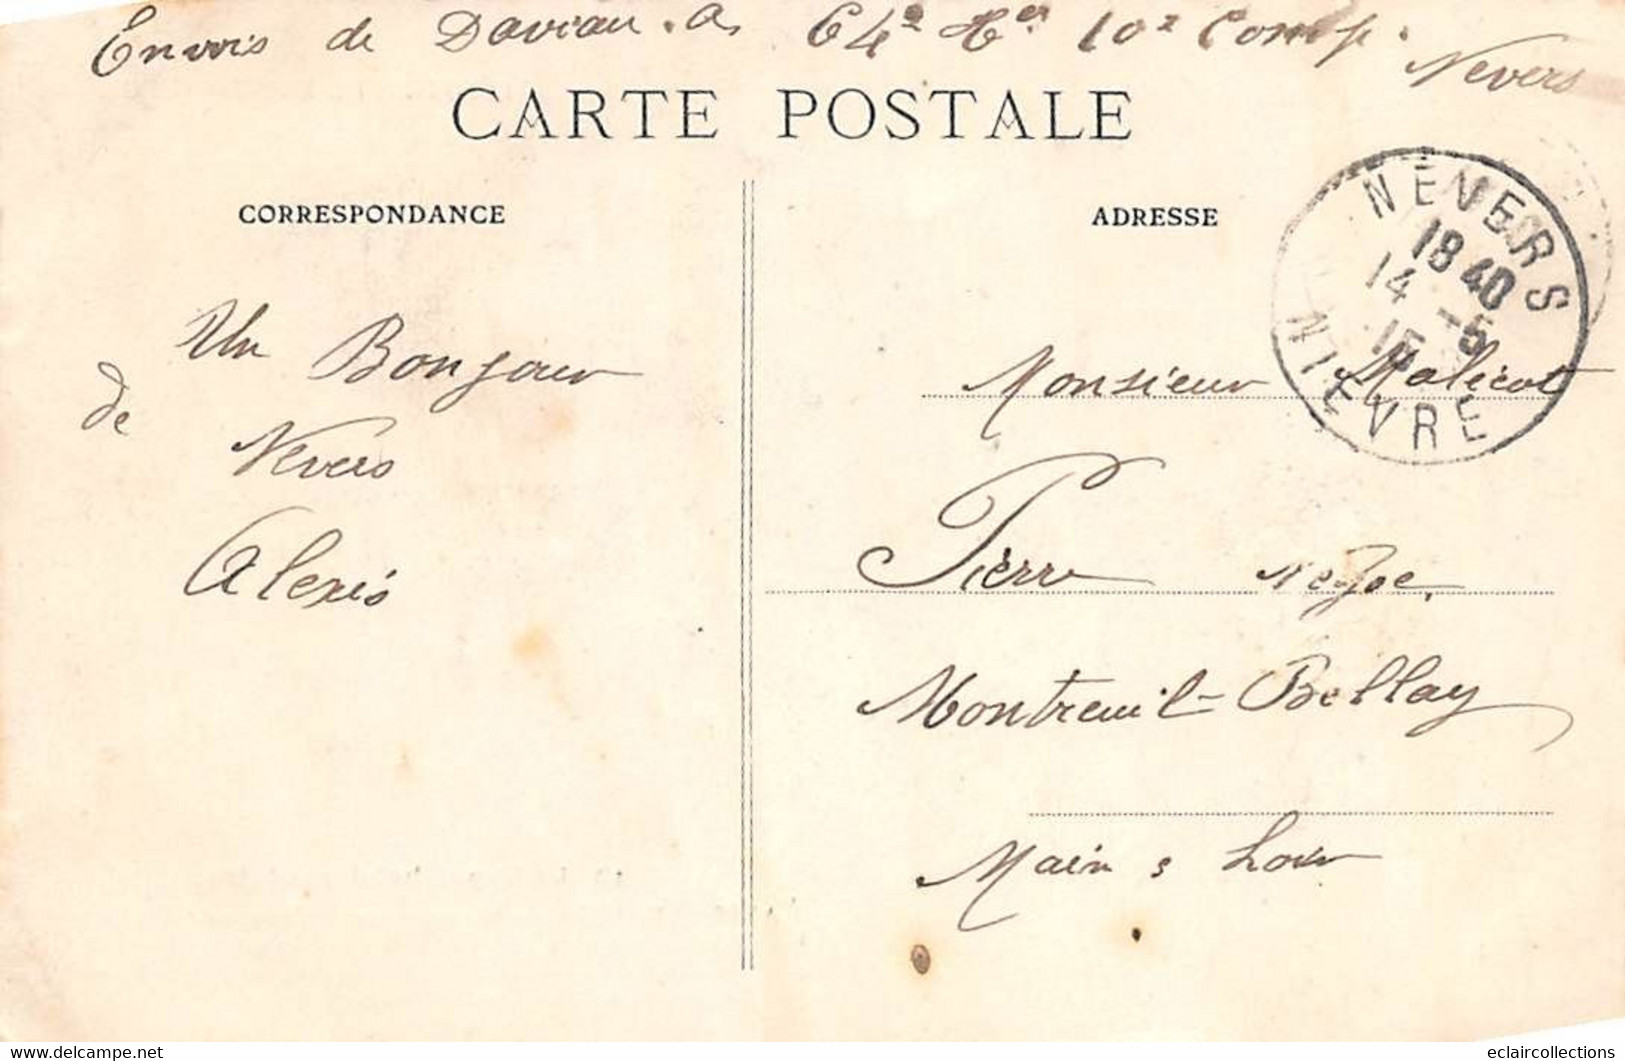 Envois de Daviau . a 64e 10e Comp.
Nevers
CARTE POSTALE
CORRESPONDANCE
ADRESSE
NEVERS
18 40
14 -5
15
NIEVRE
Un Bonjour
de
Nevers
Alexis
Monsieur Malicot
Pierre
Montreuil-Bellay
Main s Loir
eclaircollections